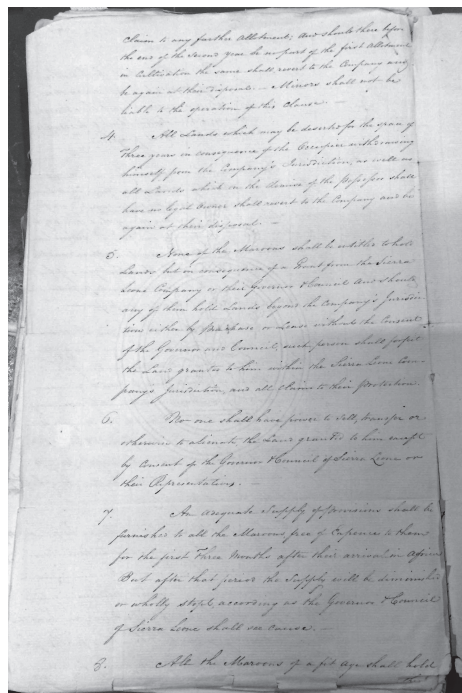 Claim to any further Allotment; And should there before
the end of the Second year be no part of the first Allotment
in Cultivation the same shall revert to the Company and
be again at their disposal — Minors shall not be
liable to the operation of this Clause. —
4. All Lands which may be deserted for the space of
Three years in consequence of the Occupier withdrawing
himself from the Company's Jurisdiction, as well as
all Lands which in the demise of the Possessor shall
have no legal Owner shall revert to the Company and be
again at their disposal. —
5. None of the Maroons shall be entitled to hold
Lands but in consequence of a Grant from the Sierra
Leone Company or their Governor & Council And should
any of them hold Lands beyond the Company's Jurisdic-
tion either by Purchase or Lease without the Consent
of the Governor and Council, such person shall forfeit
the Land granted to him within the Sierra Leone Com-
pany's Jurisdiction, and all Claim to their Protection.
6. No one shall have power to Sell, transfer or
otherwise to alienate the Land granted to him except
by Consent of the Governor & Council of Sierra Leone or
their Representatives. —
7. An adequate Supply of Provisions shall be
furnished to all the Maroons free of Expence to them
for the first Three Months after their arrival in Africa
But after that period the Supply will be diminished
or wholly stopt, according as the Governor & Council
of Sierra Leone shall see cause. —
8. All the Maroons of a fit Age shall hold